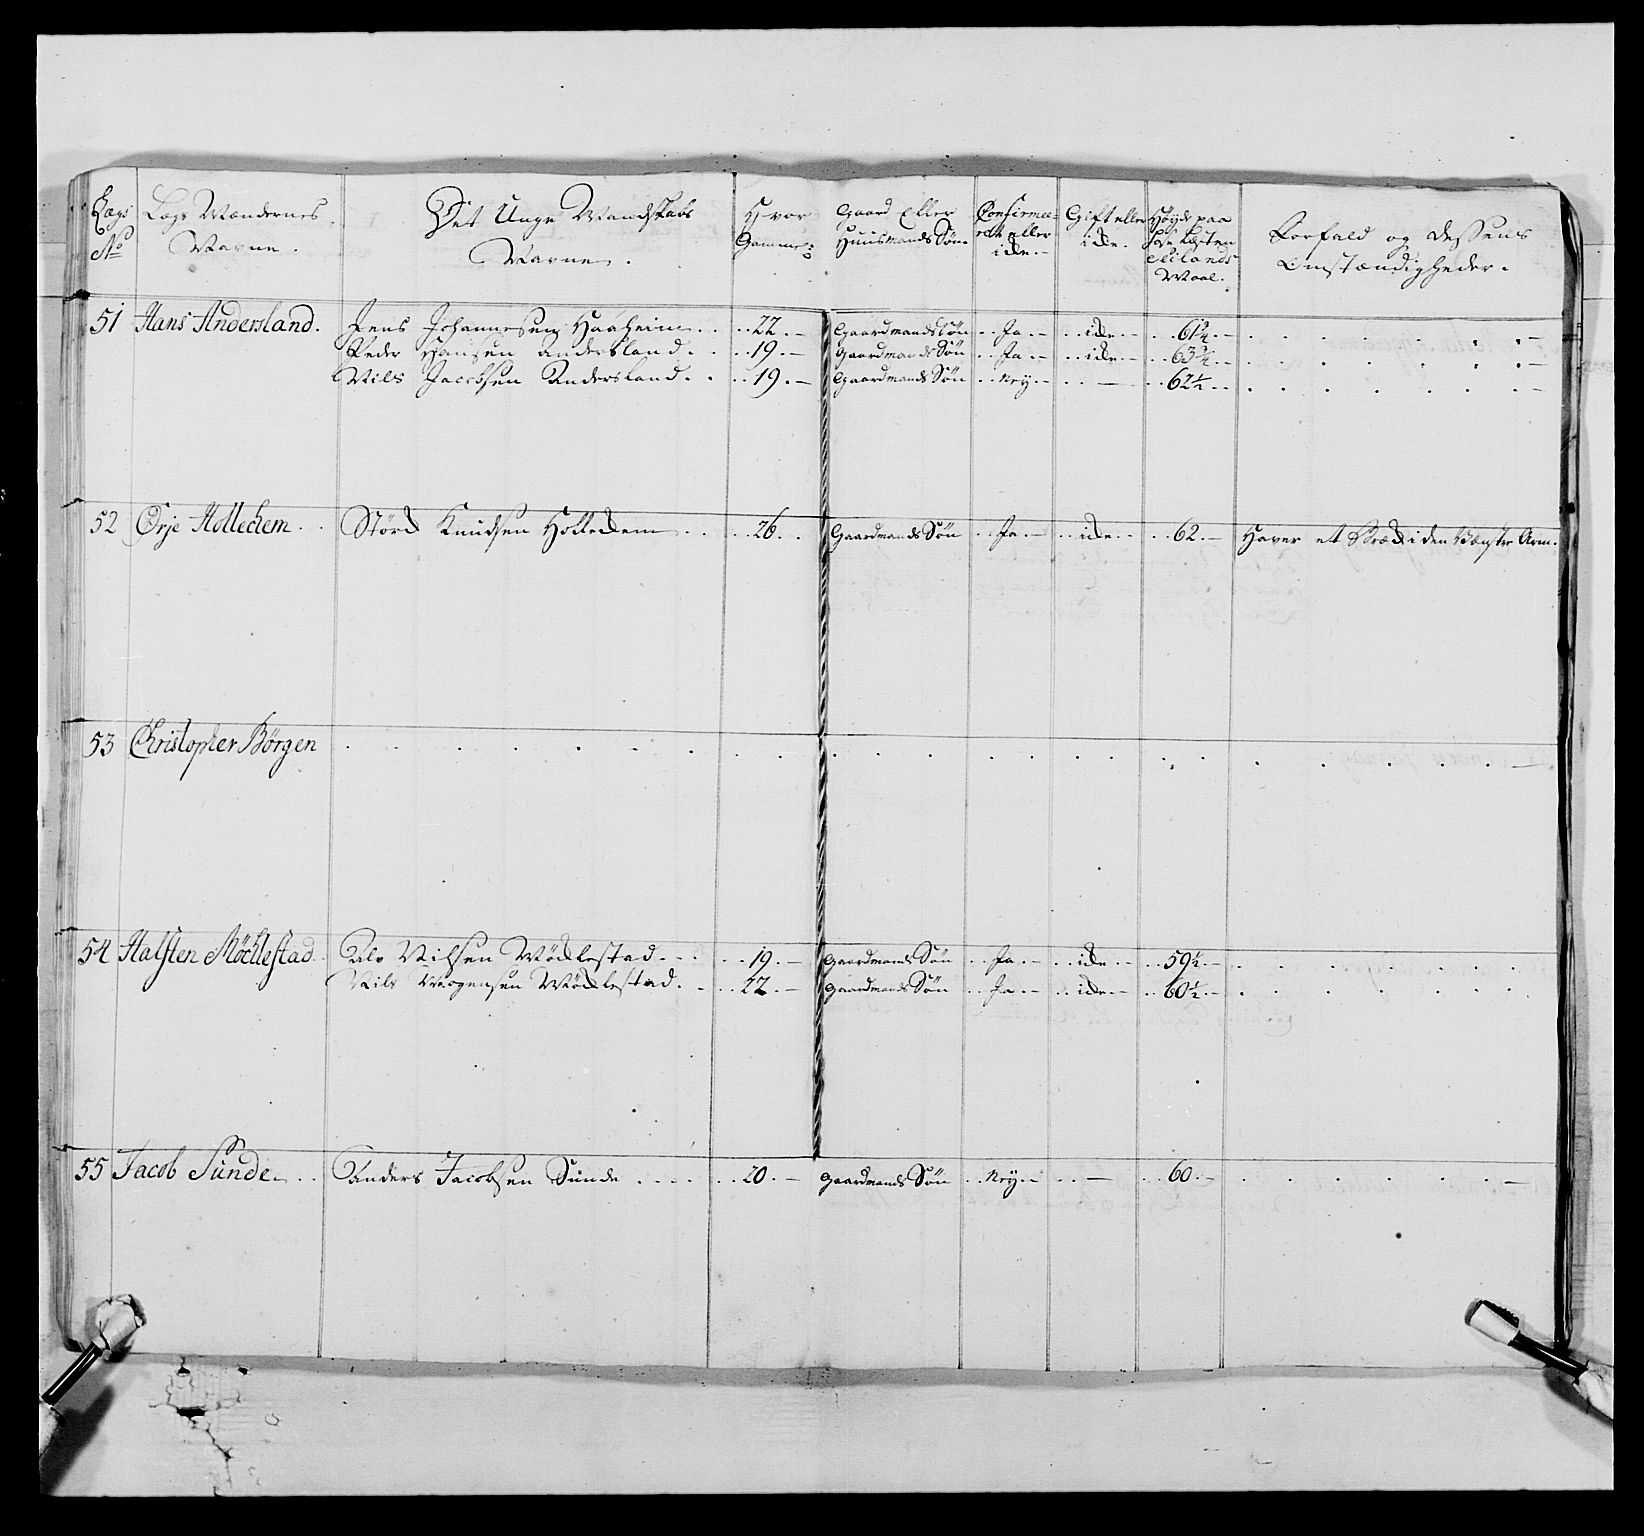 Lags No | Lags Mændernes Navne. | Det Unge Mandskabs Navne. | Hvor Gammel: | Gaard Eller Huusmands Søn. | Confirme= rett eller icke. | Gift eller icke. | Høyde paa Sielands Maal. | Forfald og dessens Omstændigheder.
51 Hans Andersland. Jens Johannesen Haaheim . . 22. Gaardmands Søn . . Ja . . icke . . 61 3/4
Peder Hansen Andersland . . 19. Gaardmands Søn . . Ja . . icke . . 63 3/4
Nils Jacobsen Andersland . . 19. Gaardmands Søn . . Ney . . — . . 62 1/2
52 Ørje Hollechem . . Størck Knudsen Holleckem . . 26. . Gaardmands Søn . . Ja . . icke . . 62. Haver et Bræck i den Venstre Arm.
53 Christopher Børgen
54 Halsten Möchlestad . . Nilsen Möcklestad . . 19. Gaardmands Søn . . Ja . . icke . . 59 1/2
Nils Mogensen Möcklestad . . 22. Gaardmands Søn . . Ja . . icke . . 60 1/2
55 Jacob Sunde . . Anders Jacobsen Sunde . . 20. Gaardmands Søn . . Ney . . — . . 60.